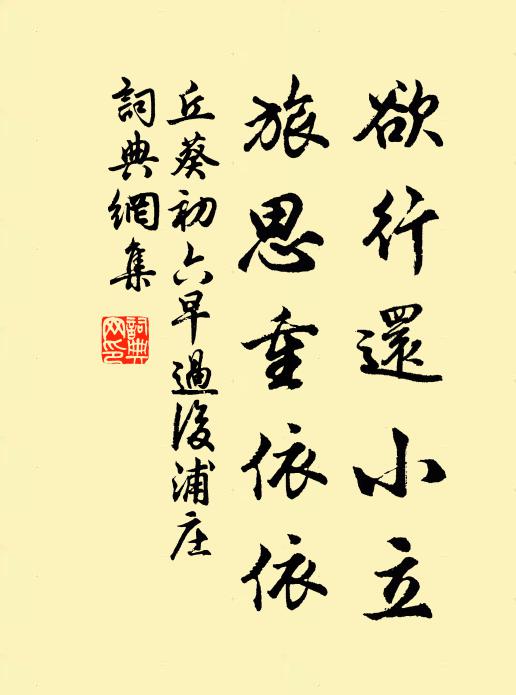 欲行還小立
旅思重依依
丘葵初六早過後浦庄
詞典網集
詞典網印